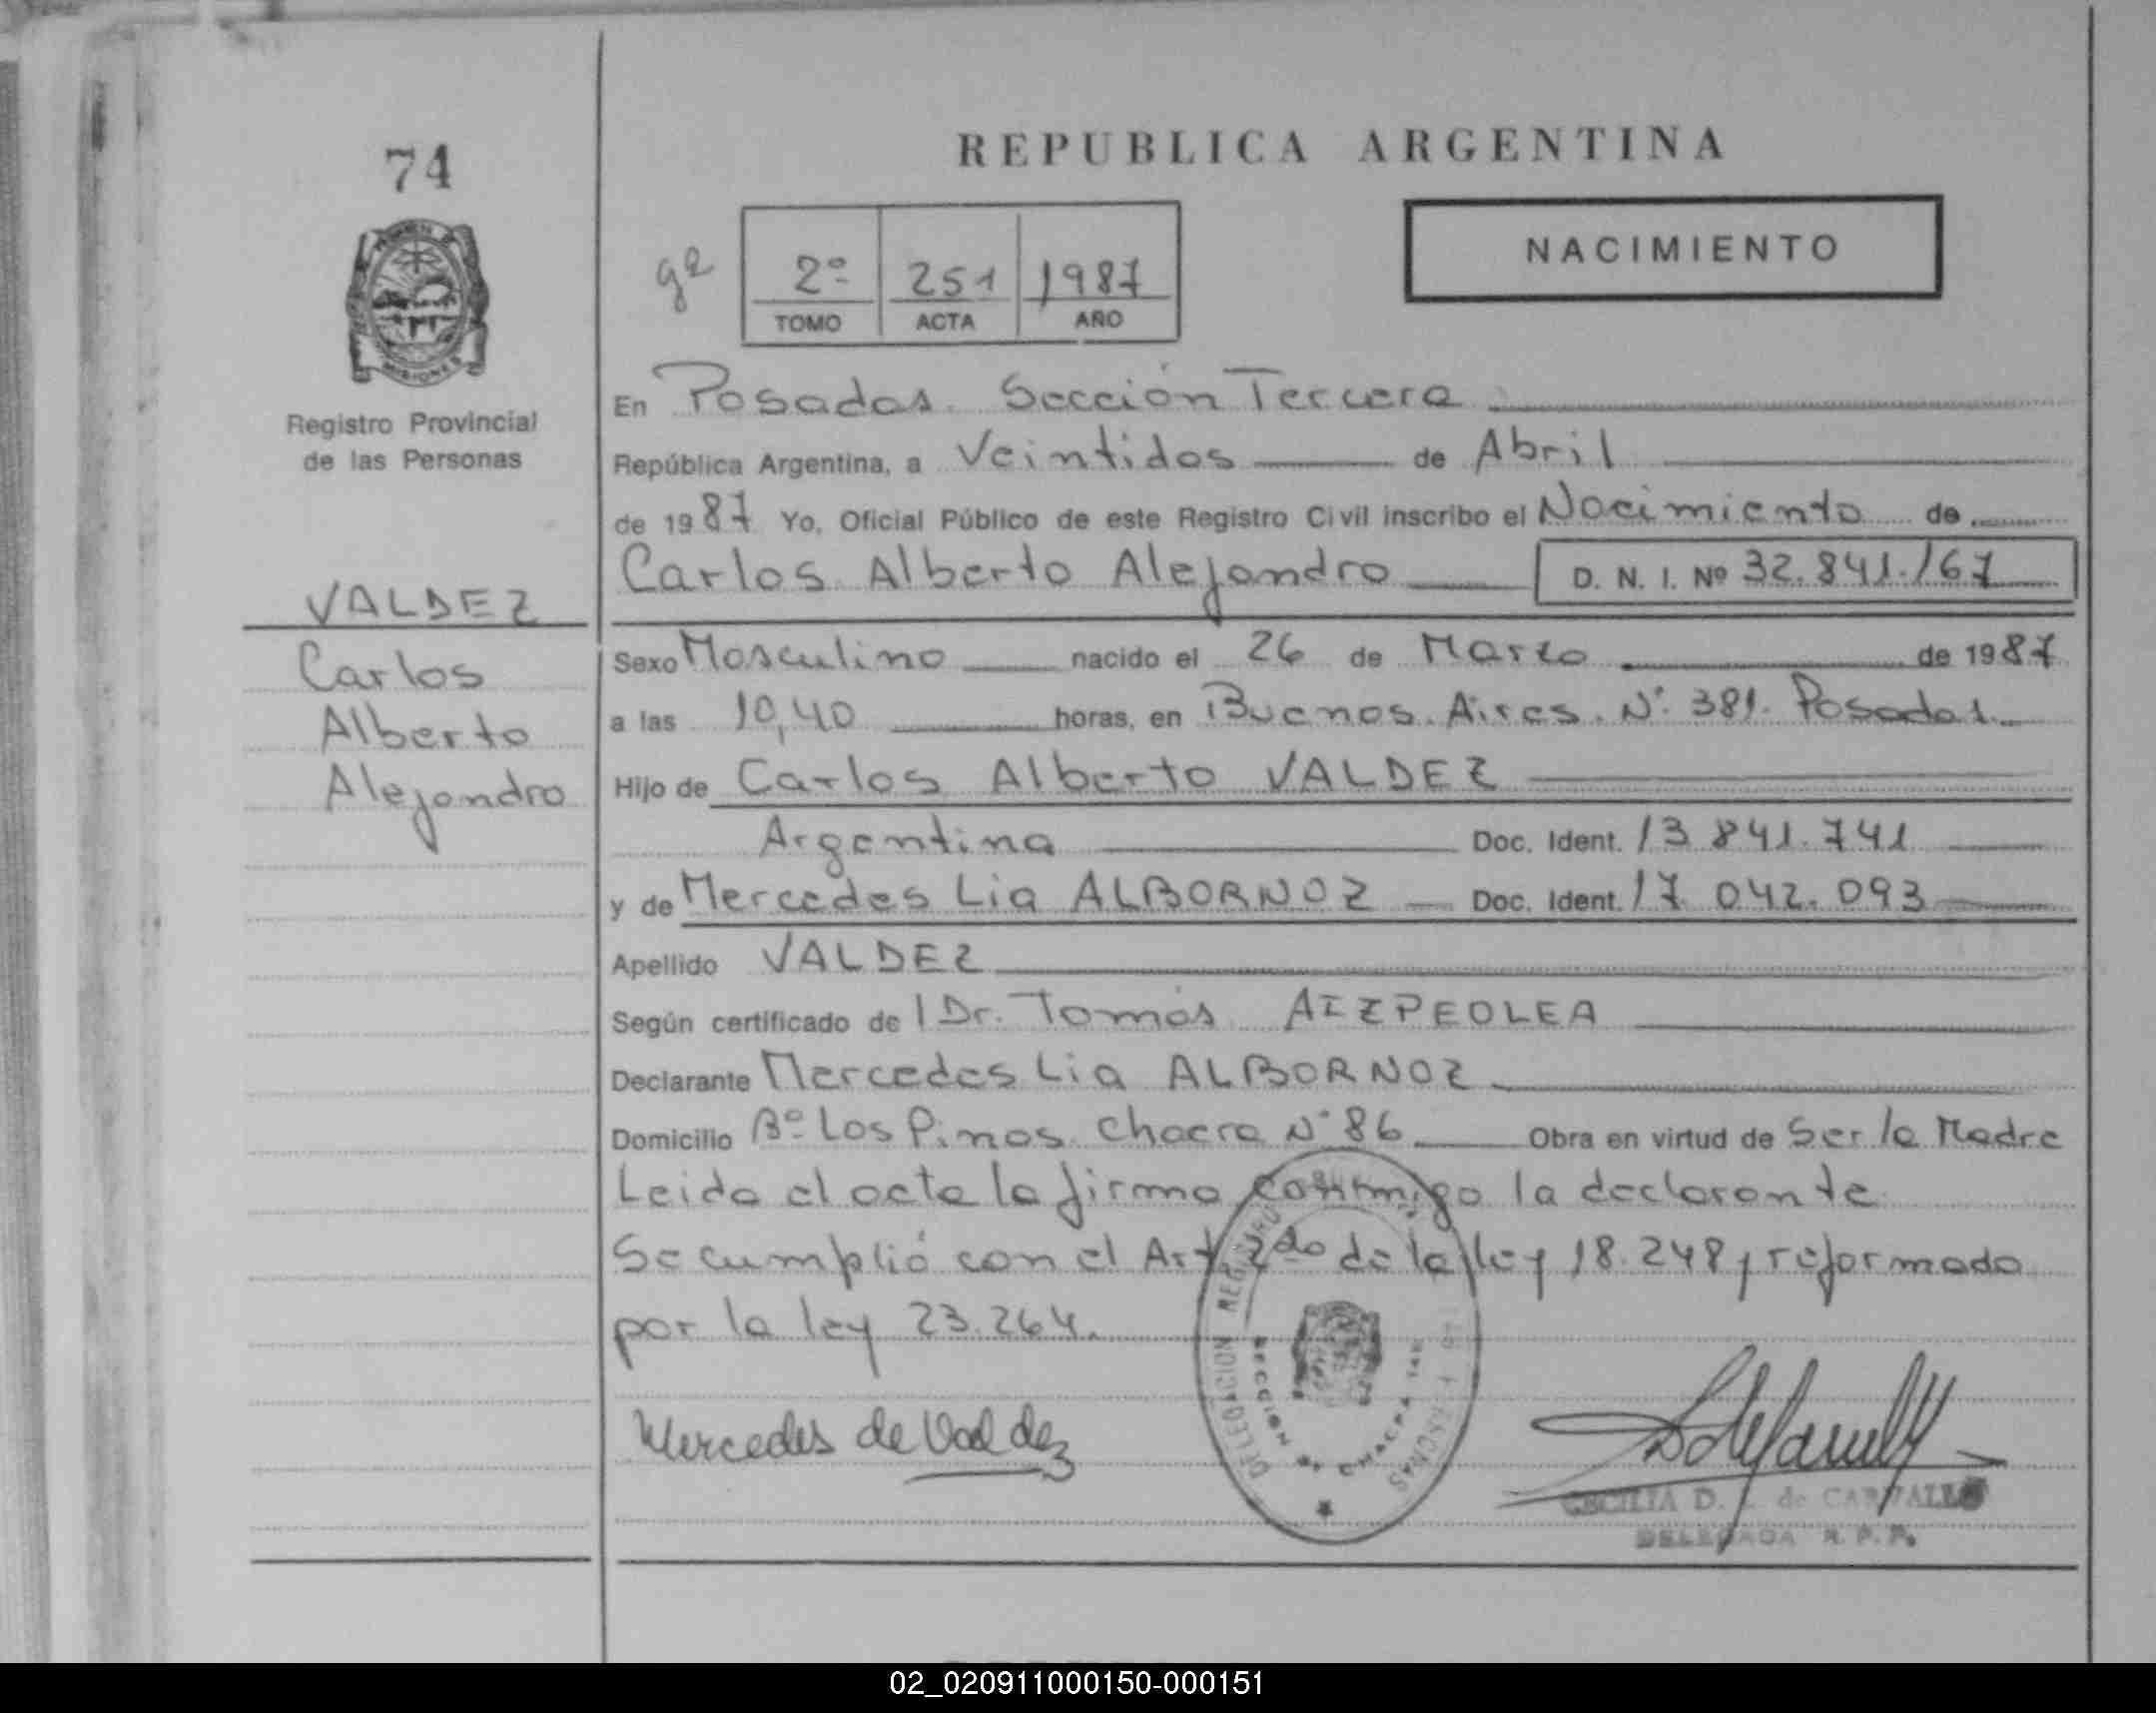 74
REPUBLICA ARGENTINA
NACIMIENTO
g2
2º 251 1987
TOMO ACTA AÑO
MISIONES
Registro Provincial
de las Personas
En Posadas. Sección Tercera
República Argentina, a Veintidos de Abril
de 1987 Yo, Oficial Público de este Registro Civil inscribo el Nacimiento de
Carlos Alberto Alejandro D. N. I. Nº 32.841.167
VALDEZ
Carlos
Alberto
Alejandro
Sexo Masculino nacido el 26 de Marzo de 1987
a las 10,40 horas, en Buenos Aires. Nº 381. Posadas
Hijo de Carlos Alberto VALDEZ
Argentina Doc. Ident. 13.841.741
y de Mercedes Lia ALBORNOZ Doc. Ident. 17.042.093
Apellido VALDEZ
Según certificado del Dr. Tomás AIZPEOLEA
Declarante Mercedes Lia ALBORNOZ
Domicilio Bº Los Pinos Chacra Nº 86 Obra en virtud de Ser la Madre
Leida el acta la firma conmigo la declarante
Se cumplió con el Art 2do de la ley 18.248, reformada
por la ley 23.264.
DELEGACION REGISTRO
SECCION 3ª CHACRA
Mercedes de Valdez
CECILIA D. de CARVALLO
DELEGADA R. P. P.
02_020911000150-000151